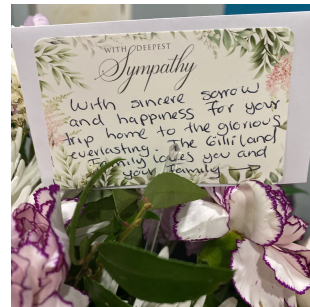 WITH DEEPEST
Sympathy
With sincere sorrow
and happiness for your
trip home to the glorious
everlasting. The Gilliland
Family loves you and
your Family